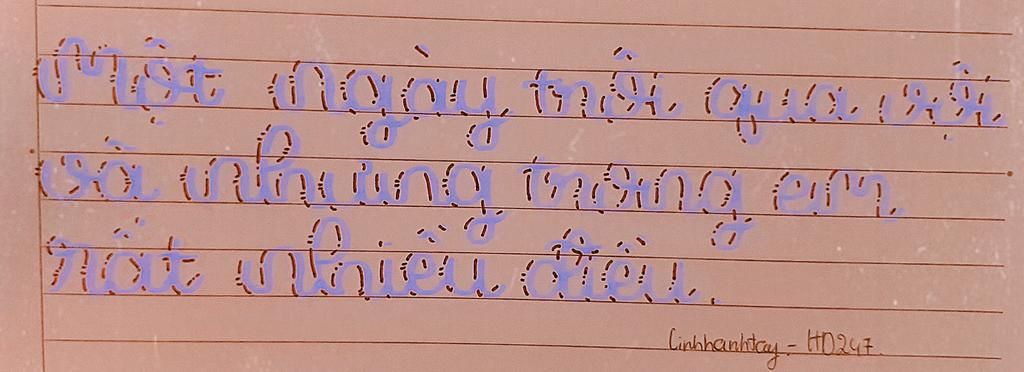 Một ngày trôi qua vội
và nhưng trong em
rất nhiều điều.
Linhhanhtay - HD247.